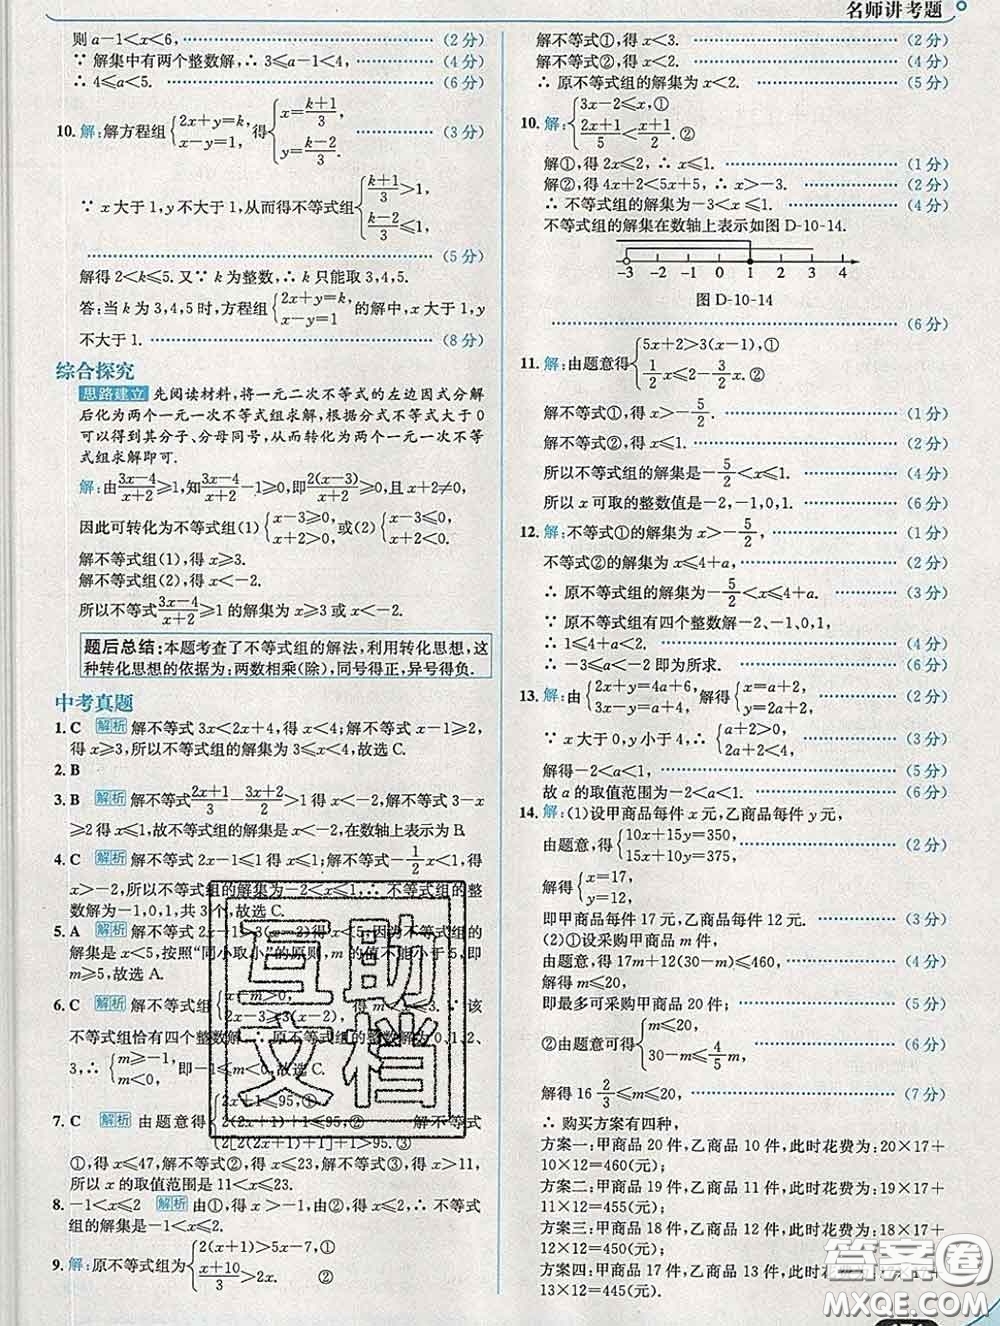 名师讲考题
则 a−1<x<6, (2分)
∵ 解集中有两个整数解,∴ 3⩽a−1<4, (4分)
∴ 4⩽a<5. (6分)
10. 解:解方程组{2x+y=k, x−y=1, 得{x=(k+1)/3, y=(k−2)/3. (3分)
∵ x 大于 1,y 不大于 1,从而得不等式组{(k+1)/3>1, (k−2)/3⩽1,
(5分)
解得 2<k⩽5. 又∵ k 为整数,∴ k 只能取 3,4,5.
答:当 k 为 3,4,5 时,方程组{2x+y=k, x−y=1 的解中,x 大于 1,y
不大于 1. (8分)
综合探究
思路建立 先阅读材料,将一元二次不等式的左边因式分解
后化为两个一元一次不等式组求解,根据分式不等式大于 0
可以得到其分子、分母同号,从而转化为两个一元一次不等
式组求解即可.
解:由(3x−4)/(x+2)⩾1,知(3x−4)/(x+2)−1⩾0,即2(x−3)/(x+2)⩾0,且 x+2≠0,
因此可转化为不等式组(1){x−3⩾0, x+2>0, 或(2){x−3⩽0, x+2<0.
解不等式组(1),得 x⩾3.
解不等式组(2),得 x<−2.
所以不等式(3x−4)/(x+2)⩾1 的解集为 x⩾3 或 x<−2.
题后总结:本题考查了不等式组的解法,利用转化思想,这
种转化思想的依据为:两数相乘(除),同号得正,异号得负.
中考真题
1. C 解析 解不等式 3x<2x+4,得 x<4;解不等式 x−1⩾2,
得 x⩾3,所以不等式组的解集为 3⩽x<4,故选 C.
2. B
3. B 解析 解不等式(2x+1)/3−(3x+2)/2>1 得 x<−2,解不等式 3−x
⩾2 得 x⩽1,故不等式组的解集是 x<−2,在数轴上表示为 B.
4. C 解析 解不等式 2x−1⩽1 得 x⩽1;解不等式−1/2x<1,得
x>−2,所以不等式组的解集为−2<x⩽1,∴ 不等式组的整
数解为−1,0,1,共 3 个,故选 C.
5. A 解析 解不等式 2x−1>3(x−2)得 x<5,因为不等式组的解
集为 x<5,按照“同小取小”的原则,m 的值不能小于 5,即
m⩾5,故选 A.
6. C 解析 解不等式组{x−m>0, 2x−3⩾3(x−2), 得 m<x⩽3. ∵ 该
不等式组恰有四个整数解,∴ 原不等式组的整数解为 0,1,2,
3,∴{m⩾−1, m<0, 即−1⩽m<0,故选 C.
7. C 解析 由题意得{2x+1⩽95,① 2(2x+1)+1⩽95,② 2[2(2x+1)+1]+1>95.③ 解不等式
①,得 x⩽47,解不等式②,得 x⩽23,解不等式③,得 x>11,
所以 x 的取值范围是 11<x⩽23.
8. −1<x⩽2 解析 由①,得 x>−1,由②,得 x⩽2,∴ 不等式
组的解集是−1<x⩽2.
9. 解:原不等式组为{2(x+1)>5x−7,① (x+10)/3>2x. ②
解不等式①,得 x<3. (2分)
解不等式②,得 x<2. (4分)
∴ 原不等式组的解集为 x<2. (5分)
10. 解:{3x−2⩽x,① (2x+1)/5<(x+1)/2. ②
解①,得 2x⩽2,∴ x⩽1. (1分)
解②,得 4x+2<5x+5,∴ x>−3. (2分)
∴ 不等式组的解集为−3<x⩽1. (4分)
不等式组的解集在数轴上表示如图 D-10-14.
−3 −2 −1 0 1 2 3 4
图 D-10-14
(6分)
11. 解:由题意得{5x+2>3(x−1),① 1/2x⩽2−3/2x. ②
解不等式①,得 x>−5/2. (1分)
解不等式②,得 x⩽1. (2分)
所以不等式组的解集是−5/2<x⩽1. (4分)
所以 x 可取的整数值是−2,−1,0,1. (6分)
12. 解:不等式①的解集为 x>−5/2, (1分)
不等式②的解集为 x⩽4+a, (2分)
∴ 原不等式组的解集为−5/2<x⩽4+a. (3分)
∵ 原不等式组有四个整数解−2、−1,0,1,
∴ 1⩽4+a<2. (4分)
∴ −3⩽a<−2 即为所求. (6分)
13. 解:由{2x+y=4a+6, 3x−y=a+4, 解得{x=a+2, y=2a+2,
∵ x 大于 0,y 小于 4,∴{a+2>0, 2a+2<4, (3分)
解得−2<a<1, (5分)
故 a 的取值范围为−2<a<1. (6分)
14. 解:(1)设甲商品每件 x 元,乙商品每件 y 元,
由题意,得{10x+15y=350, 15x+10y=375, (2分)
解得{x=17, y=12,
即甲商品每件 17 元,乙商品每件 12 元. (3分)
(2)①设采购甲商品 m 件,
由题意,得 17m+12(30−m)⩽460, (4分)
解得 m⩽20,
即最多可采购甲商品 20 件; (5分)
②由题意可得{m⩽20, 30−m⩽4/5m, (6分)
解得 16 2/3⩽m⩽20, (7分)
∴ 购买方案有四种,
方案一:甲商品 20 件,乙商品 10 件,此时花费为:20×17+
10×12=460(元);
方案二:甲商品 19 件,乙商品 11 件,此时花费为:19×17+
11×12=455(元);
方案三:甲商品 18 件,乙商品 12 件,此时花费为:18×17+
12×12=450(元);
方案四:甲商品 17 件,乙商品 13 件,此时花费为:17×17+
13×12=445(元).
互助
文档
答案圈
MXQE.COM